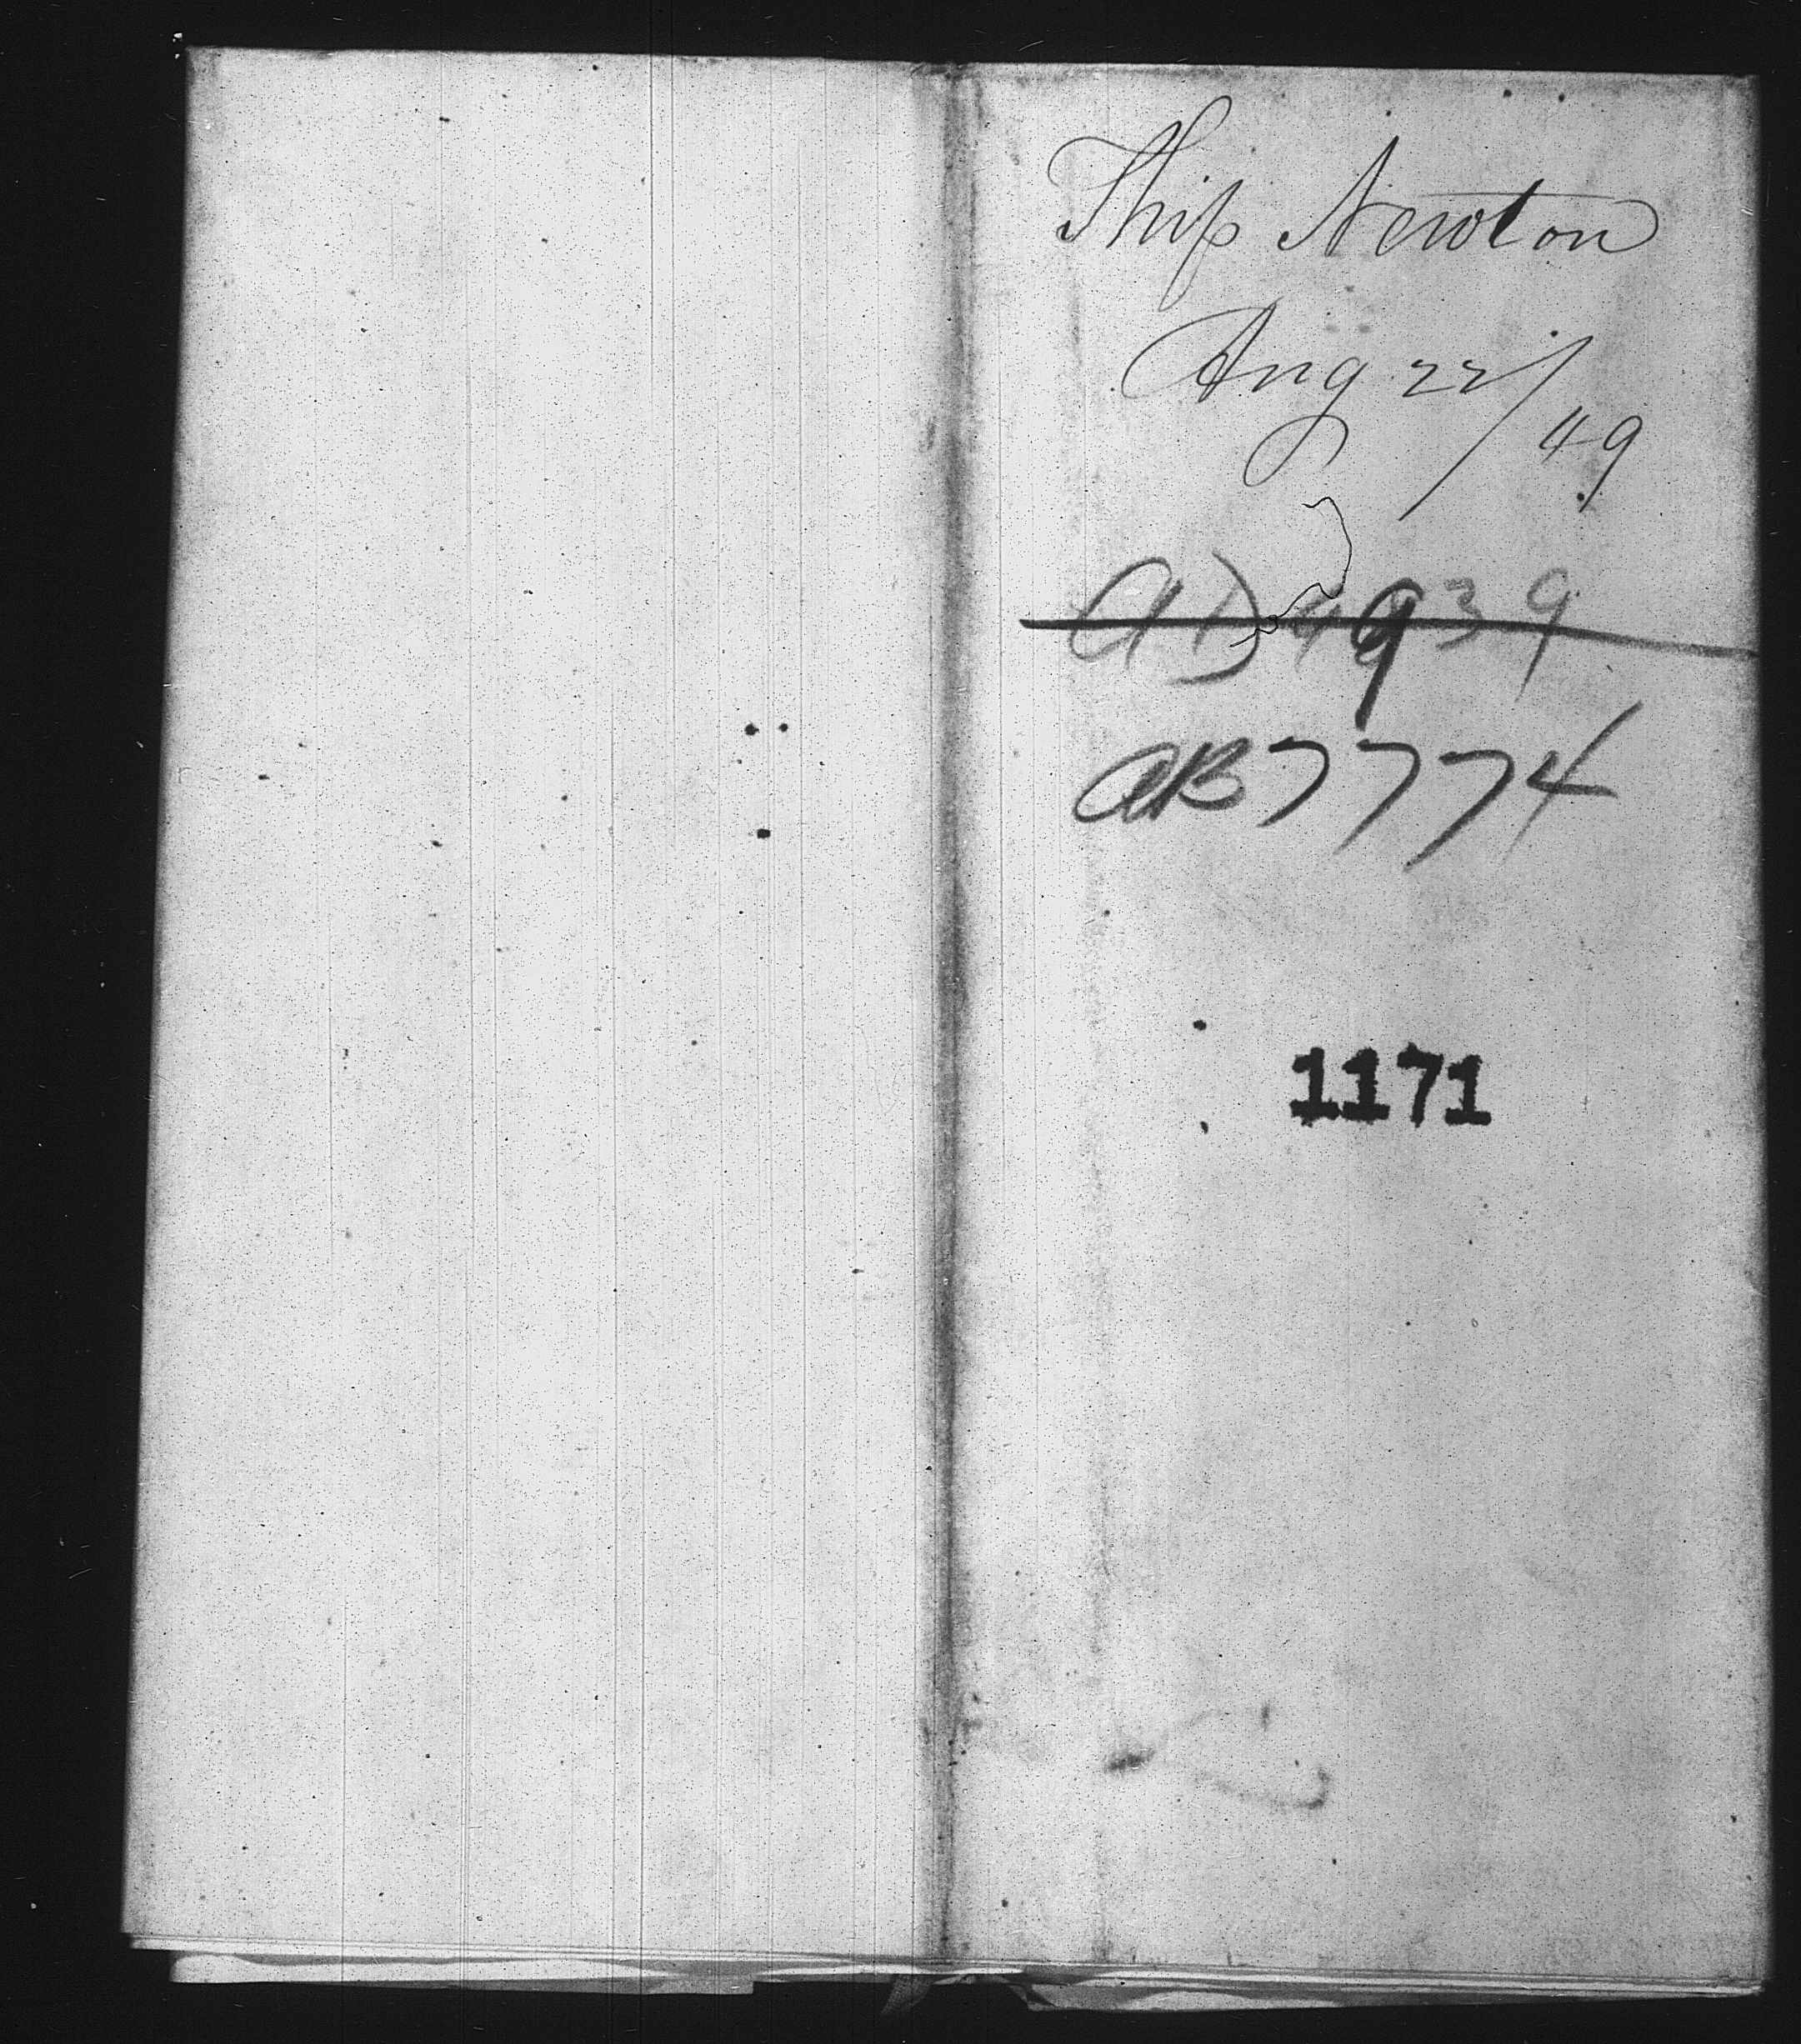 Ship Newton
Aug 22/49
AD 4939
AB 7774
1171